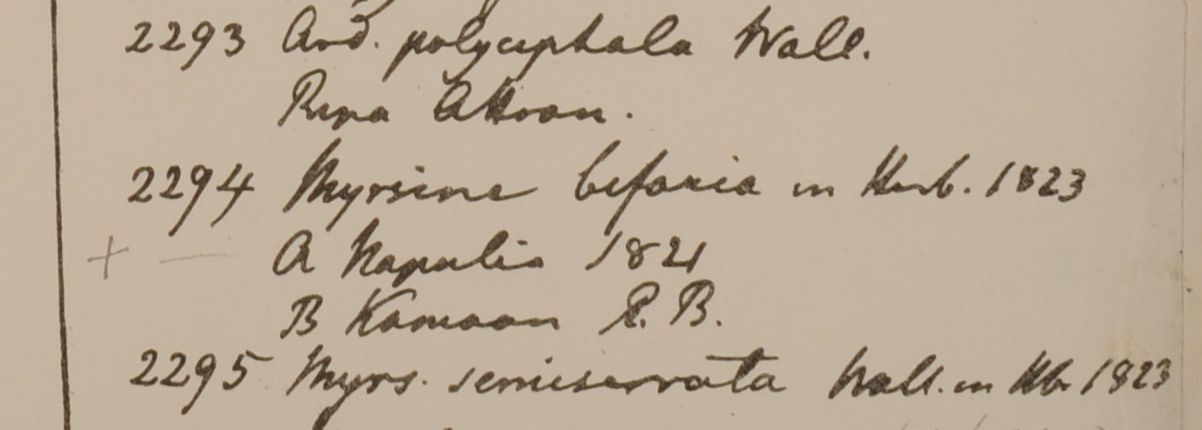 2293 Ard. polycephala Wall.
Ripa Attran.
2294 Myrsine bifaria in Herb. 1823
+ — A Napalia 1821
B Kamaon R. B.
2295 Myrs. semiserrata Wall. in Hb. 1823